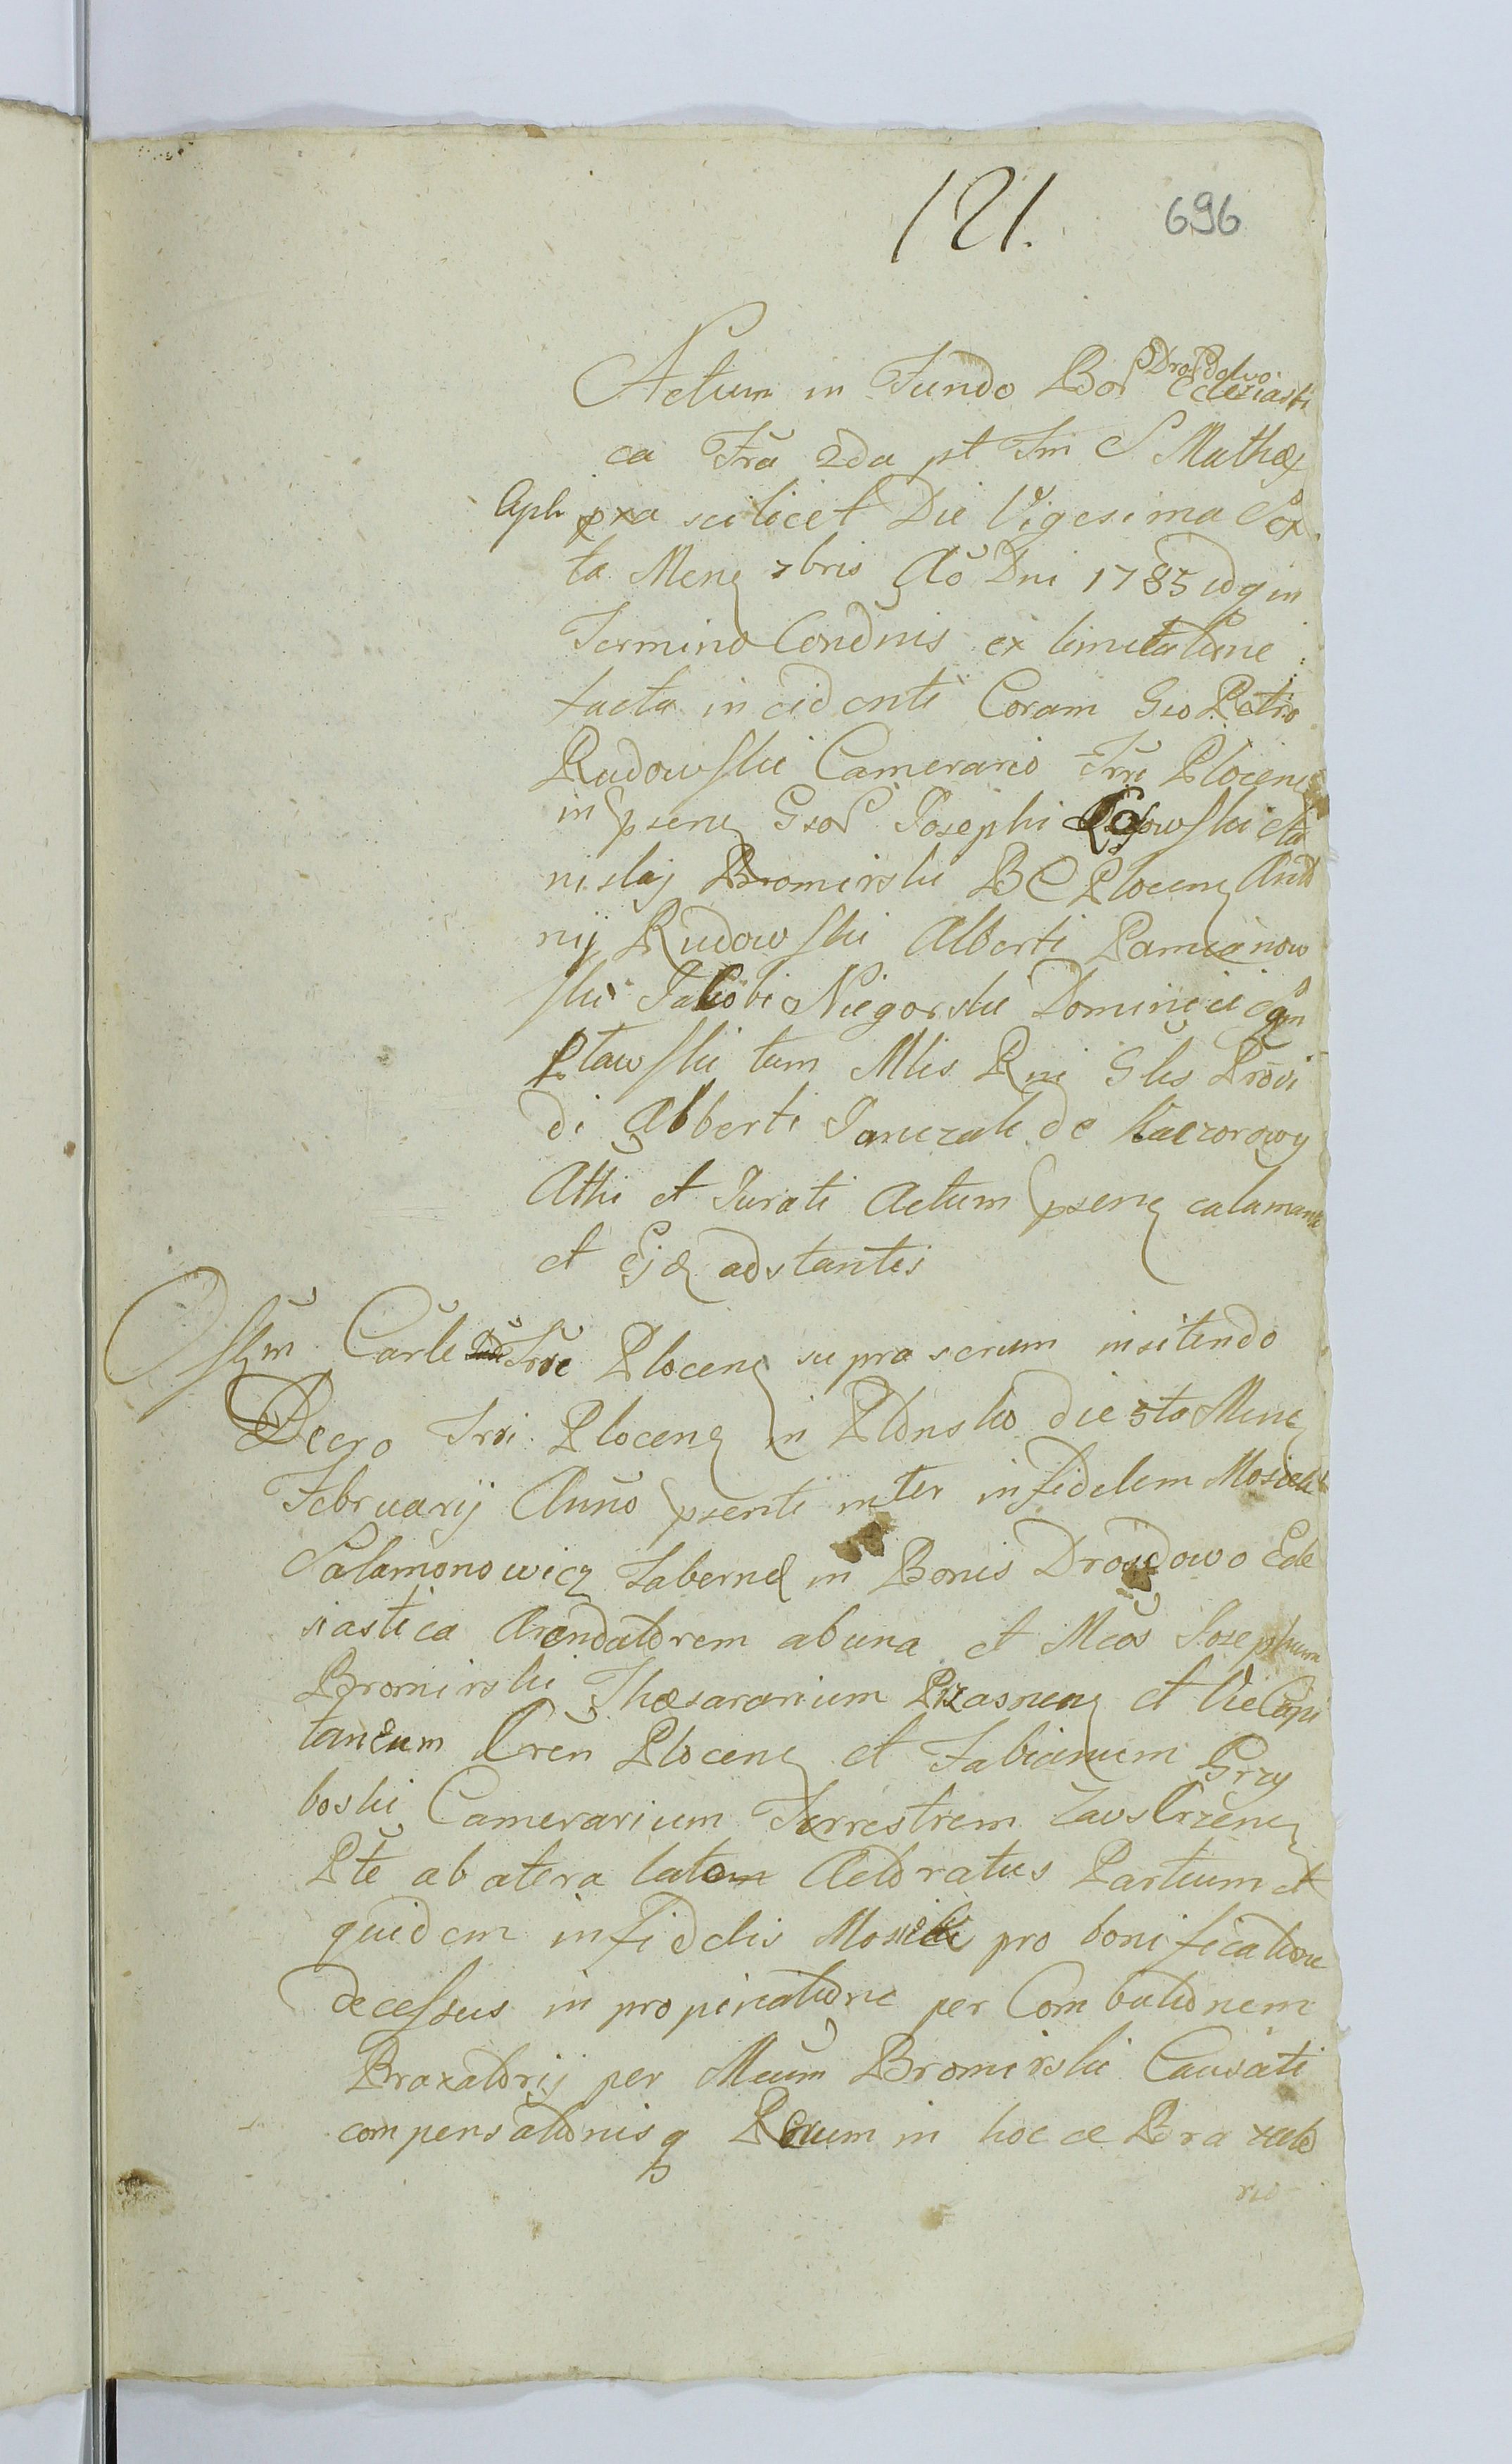 121. 696
Drozdowo
Actum in Fundo Bor Ecclesiasti
ca Fra 2da pt Fm S Mathæj
Apli pxa scilicet Die Vigesima Sex
ta Mens 7bris Ao Dni 1785 idq in
Termino Condnis ex limitatione
facta incidenti Coram Gso Petro
Rudowski Camerario Trri Plocens
in psens Gsor Josephi Sta
nislaj Bromirski B C Plocens Anto
nij Rudowski Alberti Damianow
ski Jakobi Niegorski Dominici
ptawski tum Mlis Rni Glis Provi
di Alberti Janczak de Kaczorowy
Atti et Jurati Actum psens calamantis
et Ejd adstantis
Offm Carle Trre Plocens suprascrum insitendo
Decro Trri Plocens in Plonsko die 5ta Mens
Februarij Anno psenti inter infidelem Mosiek
Salamonowicz Tabernæ in Bonis Drozdowo Ecle
siastica Arendatorem ab una et Mcos Josephum
Bromirski Thesararium Przasnens et ViceCapi
taneum Cren Plocens et Fabianum Grzy
boski Camerarium Terrestrem Zawskrzens
Pte ab atera latom Actoratus Partium et
quidem infidelis Mosieki pro bonificatione
decessus in propinatione per Combutionem
Braxatorij per Mcum Bromirski Causati
compensationisq Rerum in hocce Braxato
rio